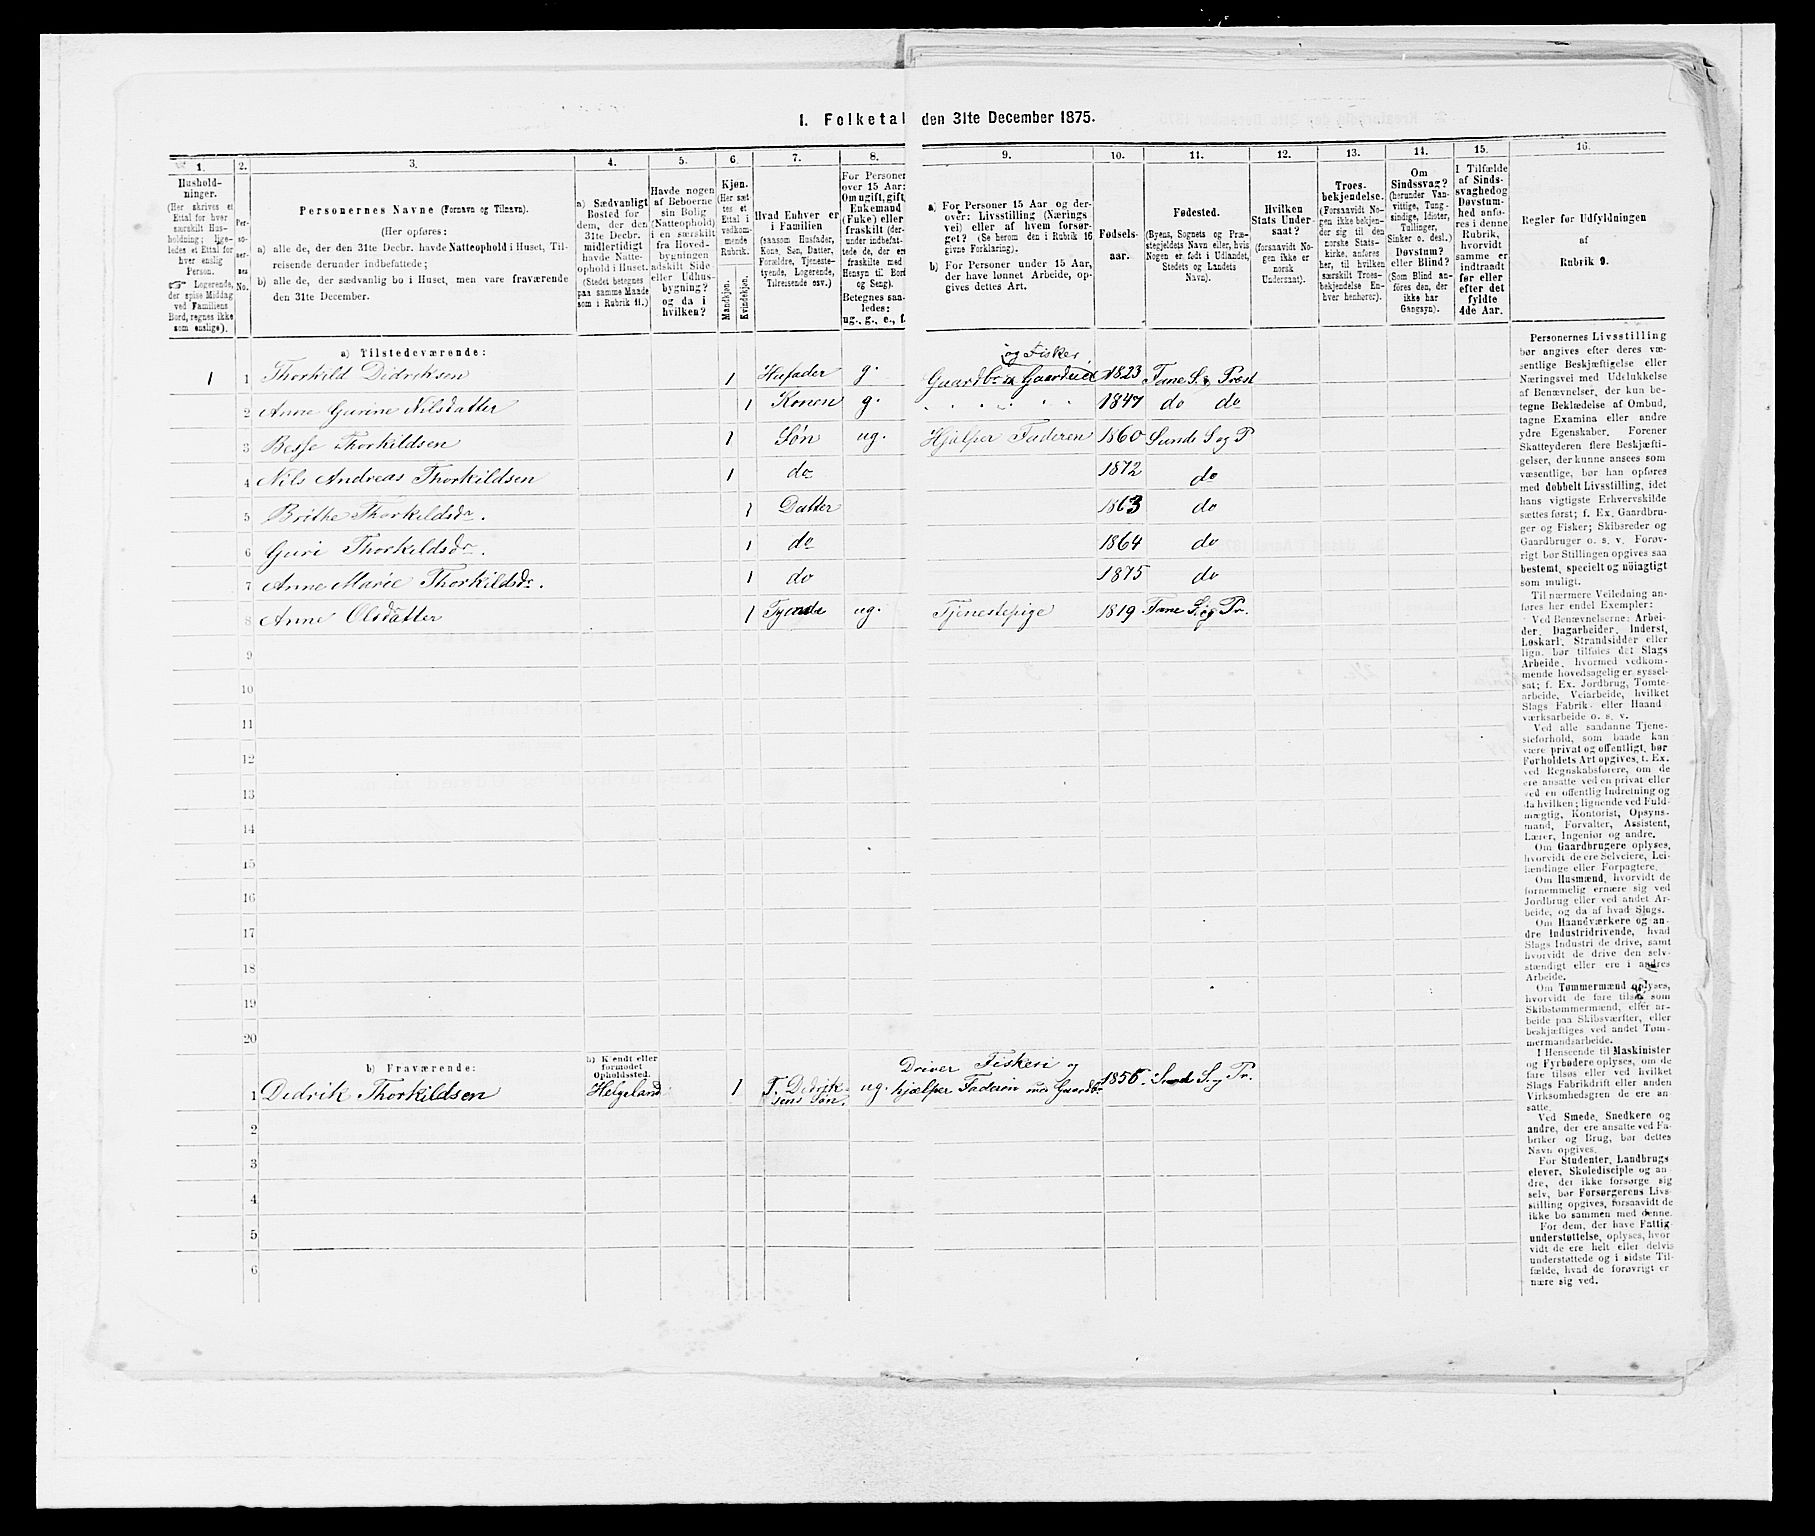 1. Folketal den 31te December 1875.
1. 2. 3. 4. 5. 6. 7. 8. 9. 10. 11. 12. 13. 14. 15. 16.
Hushold-
ninger.
(Her skrives et
Ettal for hver
særskilt Hus-
holdning; lige-
ledes et Ettal for
hver enslig
Person.
☞ Logerende,
der spise Middag
ved Familiens
Bord, regnes ikke
som enslige).
Per-
so-
ner-
nes
No.
Personernes Navne (Fornavn og Tilnavn).
(Her opføres:
a) alle de, der den 31te Decbr. havde Natteophold i Huset, Til-
reisende derunder indbefattede;
b) alle de, der sædvanlig bo i Huset, men vare fraværende
den 31te December.
a) Sædvanligt
Bosted for
dem, der den
31te Decbr.
midlertidigt
havde Natte-
ophold i Huset.
(Stedet betegnes
paa samme Maade
som i Rubrik 11.)
Havde nogen
af Beboerne
sin Bolig
(Natteophold)
i en særskilt
fra Hoved-
bygningen
adskilt Side-
eller Udhus-
bygning?
og da i
hvilken?
Kjøn.
(Her sæt-
tes et
Ettal i
vedkom-
mende
Rubrik.
Mandkjøn.
Kvindekjøn.
Hvad Enhver er
i Familien
(saasom Husfader,
Kone, Søn, Datter,
Forældre, Tjeneste-
tyende, Logerende,
Tilreisende osv.)
For Personer
over 15 Aar:
Om ugift, gift,
Enkemand
(Enke) eller
fraskilt (der-
under indbefat-
tede de, der ere
fraskilte med
Hensyn til Bord
og Seng).
Betegnes saa-
ledes:
ug., g., e., f.
a) For Personer 15 Aar og der-
over: Livsstilling (Nærings
vei) eller af hvem forsør-
get? (Se herom den i Rubrik 16
givne Forklaring).
b) For Personer under 15 Aar,
der have lønnet Arbeide, op-
gives dettes Art.
Fødsels-
aar.
Fødested.
(Byens, Sognets og Præ-
stegjeldets Navn eller, hvis
Nogen er født i Udlandet,
Stedets og Landets
Navn).
Hvilken
Stats Under-
saat?
(forsaavidt No-
gen ikke er
norsk
Undersaat).
Troes-
bekjendelse.
(Forsaavidt No-
gen ikke bekjen-
der sig til den
norske Stats-
kirke, anføres
her, til hvilken
særskilt Troes-
bekjendelse En-
hver henhører).
Om
Sindssvag?
(herunder Van-
vittige, Tung-
sindige, Idioter,
Tullinger,
Sinker o. desl.)
Døvstum?
eller Blind?
(Som Blind an-
føres den, der
ikke har
Gangsyn).
I Tilfælde
af Sinds-
svaghed og
Døvstum-
hed anfø-
res i denne
Rubrik,
hvorvidt
samme er
indtraadt
før eller
efter det
fyldte
4de Aar.
Regler for Udfyldningen
af
Rubrik 9.
a) Tilstedeværende:
og Fisker
1 1 Thorkild Didriksen 1 Husfader g. Gaardbr Gaardeier 1823 Fane S. & Præst
2 Anne Gurine Nilsdatter 1 Konen g. " " " " " 1847 do do
3 Besse Thorkildsen 1 Søn ug. Hjælper Faderen 1860 Sunds S og P
4 Nils Andreas Thorkildsen 1 do 1872 do
5 Brithe Thorkildsdr. 1 Datter 1863 do
6 Guri Thorkildsdr. 1 do 1864 do
7 Anne Marie Thorkildsdr. 1 do 1875 do
8 Anne Olsdatter 1 Tyende ug. Tjenestepige 1819 Fane S. og Pr.
9
10
11
12
13
14
15
16
17
18
19
20
b) Fraværende:
b) Kjendt eller
formodet
Opholdssted.
Driver Fiskeri og
1 Didrik Thorkildsen Helgeland 1 T. Didrik- ug. hjælper Faderen med Gaardbr 1856. Sund S. og Pr.
sens Søn.
2
3
4
5
6
Personernes Livsstilling
bør angives efter deres væ-
sentlige Beskjæftigelse eller
Næringsvei med Udelukkelse
af Benævnelser, der kun be-
tegne Beklædelse af Ombud,
tagne Examina eller andre
ydre Egenskaber. Forener
Skatteyderen flere Beskjæfti-
gelser, der kunne ansees som
væsentlige, bør han opføres
med dobbelt Livsstilling, idet
hans vigtigste Erhvervskilde
sættes først; f. Ex. Gaardbru-
ger og Fisker; Skibsreder og
Gaardbruger o. s. v. Forøv-
rigt bør Stillingen opgives saa
bestemt, specielt og nöiagtigt
som muligt.
Til nærmere Veiledning an-
føres her endel Exempler:
Ved Benævnelserne: Arbei-
der, Dagarbeider, Inderst,
Løskarl, Strandsidder eller
lign. bør tilføies det Slags
Arbeide, hvormed vedkom-
mende hovedsagelig er syssel-
sat; f. Ex. Jordbrug, Tomte-
arbeide, Veiarbeide, hvilket
Slags Fabrik- eller Haand-
værksarbeide o. s. v.
Ved alle saadanne Tjene-
steforhold, som baade kan
være privat og offentligt, bør
Forholdets Art opgives, t. Ex.
ved Regnskabsførere, om de
ere ansatte ved en privat eller
ved en offentlig Indretning og
da hvilken; lignende ved Fuld-
mægtig, Kontorist, Opsyns-
mand, Forvalter, Assistent,
Lærer, Ingeniør og andre.
Om Gaardbrugere oplyses,
hvorvidt de ere Selveiere, Lei-
lændinge eller Forpagtere.
Om Husmænd, hvorvidt de
fornemmelig ernære sig ved
Jordbrug eller ved andet Ar-
beide, og da af hvad Slags.
Om Haandværkere og an-
dre Industridrivende, hvad
Slags Industri de drive, samt
hvorvidt de drive den selv-
stændigt eller ere i andres
Arbeide.
Om Tømmermænd oplyses,
hvorvidt de fare tilsøs som
Skibstømmermænd, eller ar-
beide paa Skibsværfter, eller
beskjæftiges ved andet Tøm-
mermandsarbeide.
I Henseende til Maskinister
og Fyrbødere oplyses, om de
fare tilsøs eller ved hvilket
Slags Fabrikdrift eller anden
Virksomhedsgren de ere an-
satte.
Ved Smede, Snedkere og
andre, der ere ansatte ved Fa-
briker og Brug, bør dettes
Navn opgives.
For Studenter, Landbrugs-
elever, Skoledisciple og an-
dre, der ikke forsørge sig
selv, bør Forsørgerens Livs-
stilling opgives, forsaavidt de
ikke bo sammen med denne.
For dem, der have Fattig-
understøttelse, oplyses, hvor-
vidt de ere helt eller delvis
understøttede og i sidste Til-
fælde, hvad de forøvrigt er-
nære sig ved.